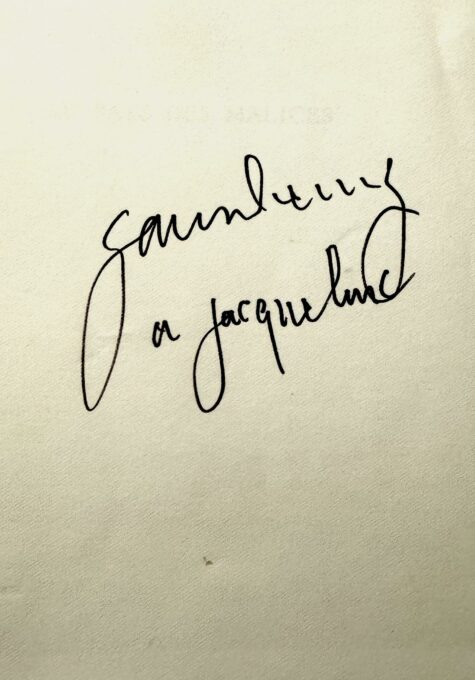 PAYS DES MALICES
gainsbourg
a jacqueline